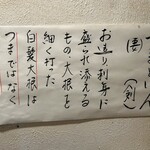 お造り刺身に
盛られ添える
もの大根を
細く打った
白髪大根は
つまではなく